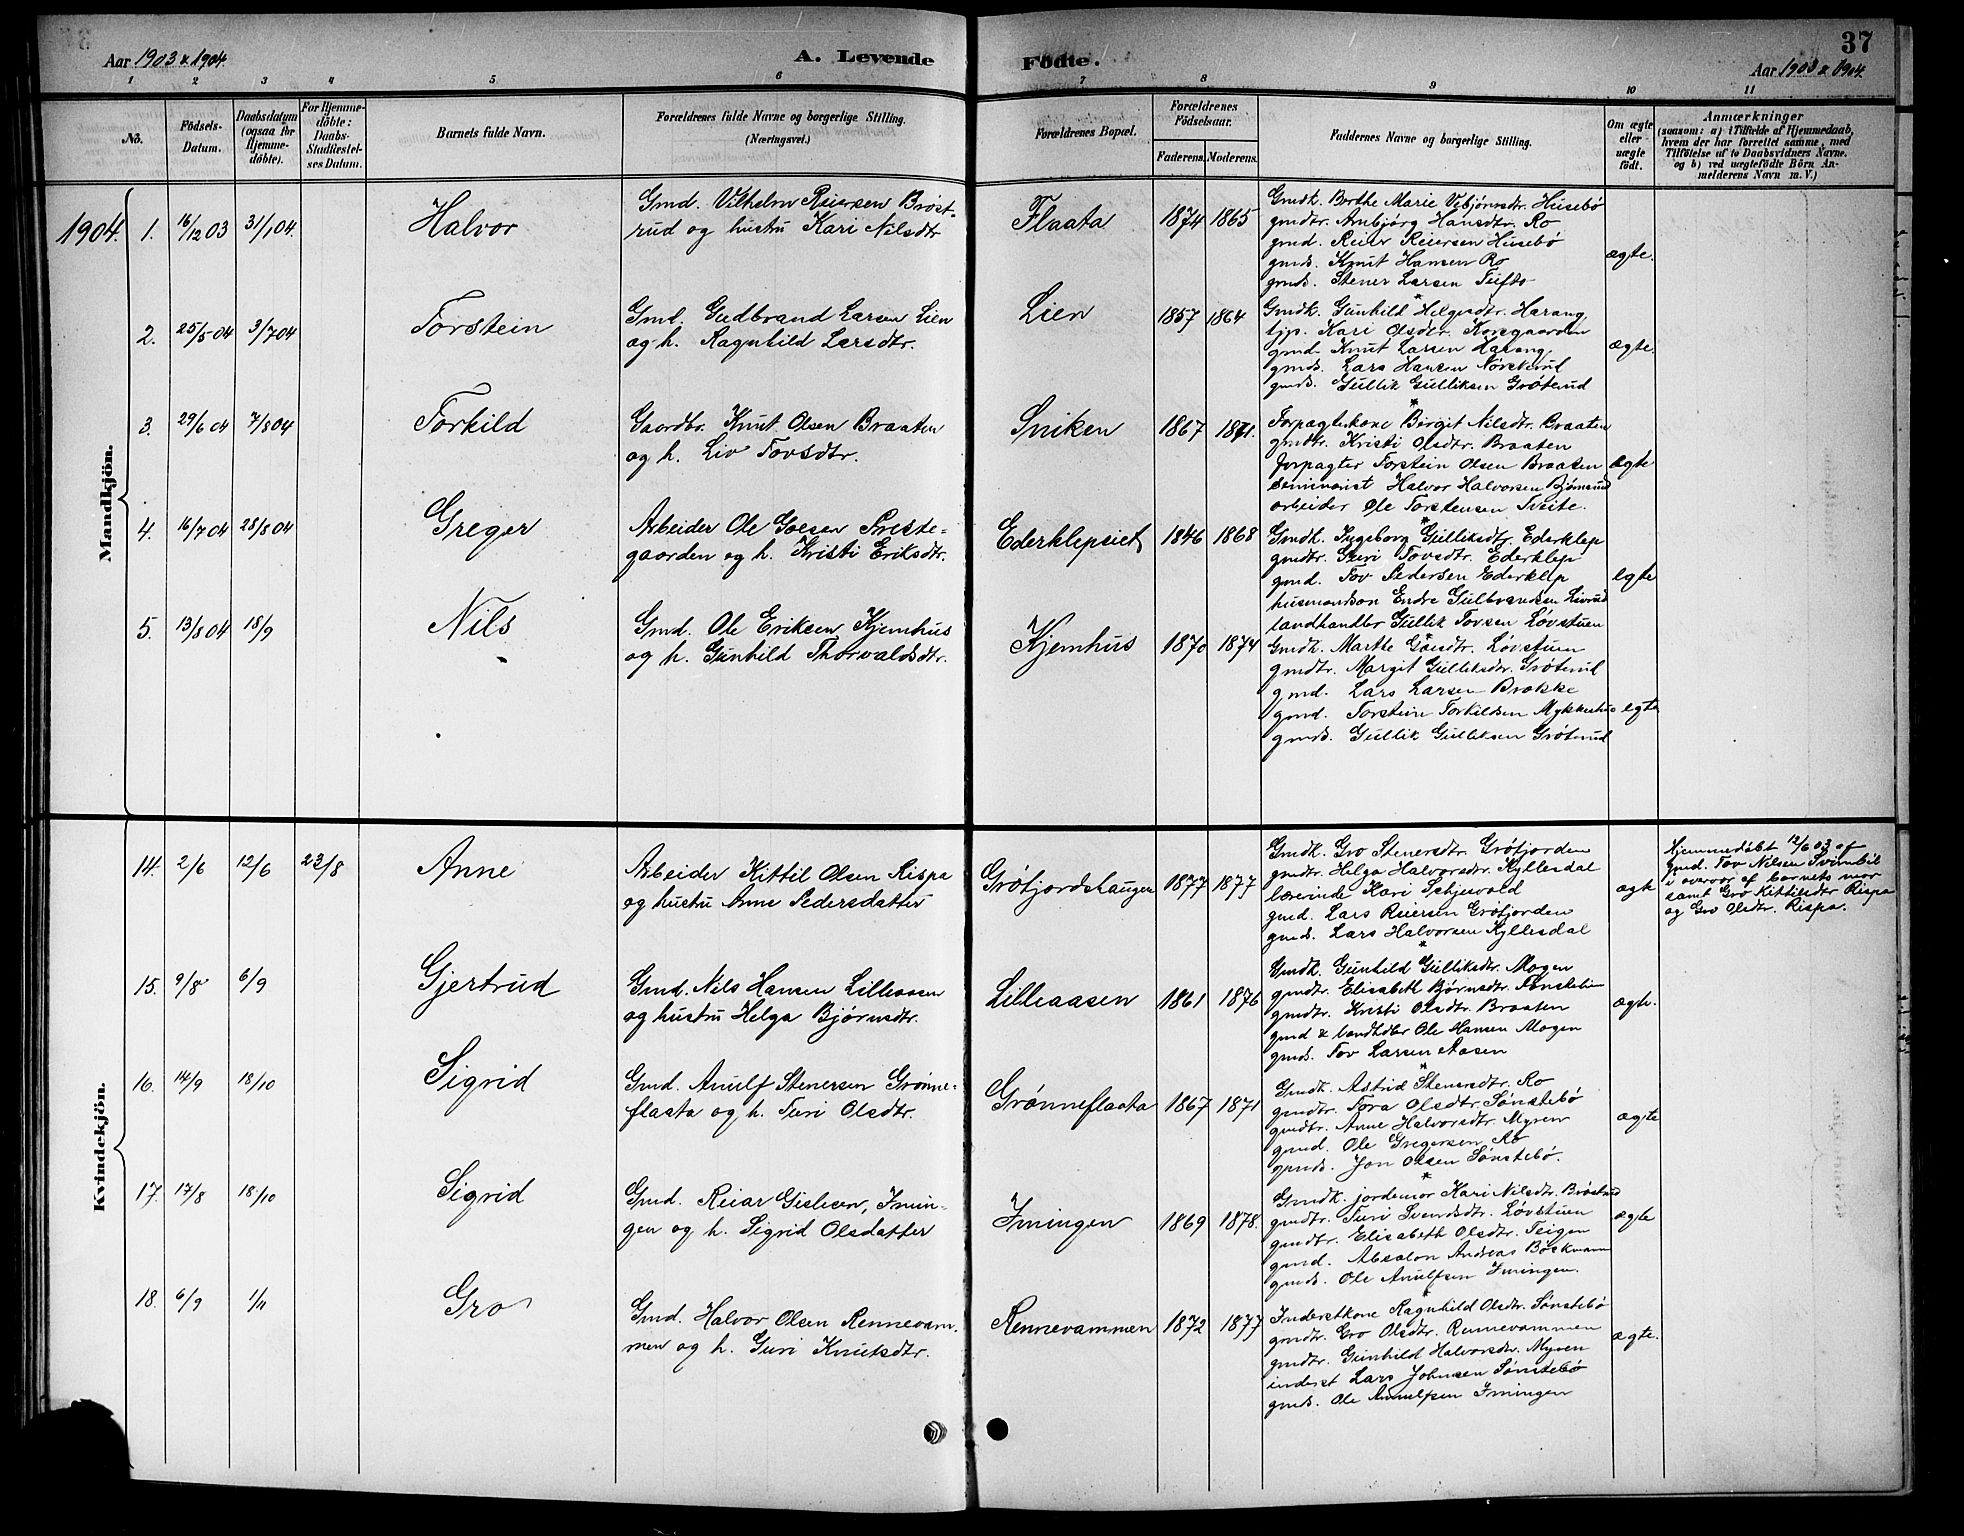 Aar 1903 & 1904.
A. Levende Födte.
37
Aar 1903 & 1904.
1 2 3 4 5 6 7 8 9 10 11
No.
Födsels-Datum.
Daabsdatum (ogsaa for Hjemmedöbte).
For Hjemmedöbte: Daabs-Stadfæstelses Datum.
Barnets fulde Navn.
Forældrenes fulde Navne og borgerlige Stilling.
(Næringsvei.)
Forældrenes Bopæl.
Forældrenes Födselsaar.
Faderens. Moderens.
Faddernes Navne og borgerlige Stilling.
Om ægte eller uægte födt.
Anmærkninger
(saasom: a) i Tilfælde af Hjemmedaab, hvem der har forrettet samme, med Tilföielse af to Daabsvidners Navne. og b) ved uægtefödte Börn Anmelderens Navn m. V.)
Mandkjön.
1904. 1. 16/12 03 31/1 04. Halvor
Gmd. Vilhelm Reiersen Brøst-
rud og hustru Kari Nilsdtr
Flaata 1874 1865
Gmdk. Berthe Marie Vebjörnsdtr. Husebö
gmdtr. Anbjörg Hansdtr. Ro
gmd. Reier Reiersen Husebö
gmds. Knut Hansen Ro
gmds. Stener Larsen Tufto
ægte.
2. 25/5 04 3/7 04 Torstein
Gmd. Gudbrand Larsen Lien
og h. Ragnhild Larsdtr.
Lien 1857 1864
Gmdk. Gunhild Helgesdtr. Harang
tjp. Kari Olsdtr. Korsgaarden
gmd. Knut Larsen Harang
gmds. Lars Hansen Nørsterud
gmds. Gullik Gulliksen Grøterud
ægte.
3. 29/6 04 7/8 04 Torkild
Gaardbr. Knut Olsen Braaten
og h. Liv Tovsdtr.
Sniken 1867 1871.
Forpagterkone Birgit Nilsdtr. Braaten
gmdtr. Kristi Olsdtr. Braaten
forpagter Torstein Olsen Braaten
seminarist Halvor Halvorsen Bjørnsrud
arbeider Ole Torstensen Tveite.
ægte
4. 16/7 04 28/8 04 Greger
Arbeider Ole Goesen Preste-
gaarden og h. Kristi Eriksdtr.
Ederklepsiet 1846 1868
Gmdk. Ingeborg Gulliksdtr. Ederklep
gmdtr. Guri Tovsdtr. Ederklep
gmd. Tov Pedersen Ederklep
husmandsøn Endre Gulbrandsen Livrud
landhandler Gullik Tovsen Løvstuen
egte
5. 13/8 04 18/9 Nils
Gmd. Ole Eriksen Kjemhus
og h. Gunhild Thorvaldsdtr.
Kjemhus 1870 1874
Gmdk. Marthe Goesdtr. Løvstuen
gmdtr. Margit Gulliksdtr. Grøterud
gmd. Lars Larsen Brække
gmd. Torstein Torkildsen Mykkeshus
gmds. Gullik Gulliksen Grøterud
egte
Kvindekjön.
14. 2/6 12/6 23/8 Anne
Arbeider Kittil Olsen Rispa
og hustru Anne Pedersdatter
Grøfjordshaugen 1877 1877
Gmdk. Gro Stenersdtr. Grøfjorden
gmdtr. Helga Halvorsdtr. Kyllesdal
lærerinde Kari Schjevold
gmd. Lars Reiersen Grøfjorden
gmds. Lars Halvorsen Kyllesdal
ægte
Hjemmedøbt 12/6 03 af
gmd. Tov Nilsen Svimbil
i overvær af barnets mor
samt Gro Kittilsdtr Rispa
og Gro Olsdtr. Rispa.
15. 9/8 6/9 Gjertrud
Gmd. Nils Hansen Lilleaasen
og hustru Helga Bjørnsdtr.
Lilleaasen 1861 1876
Gmdk. Gunhild Gulliksdtr. Mogen
gmdtr. Elisabeth Bjørnsdtr. Tønstelien
gmdtr. Kristi Olsdtr. Braaten
gmd & landhdler Ole Hansen Mogen
gmds. Tov Larsen Aasen
ægte.
16. 14/9 18/10 Sigrid
Gmd. Anulf Stenersen Grønne-
flaata og h. Turi Olsdtr.
Grønneflaata 1867 1871
Gmdk. Astrid Stenersdtr. Ro
gmdtr. Tora Olsdtr. Sønstebö
gmdtr. Anne Halvorsdtr. Myren
gmd. Ole Gregersen Ro
gmds. Jon Olsen Sønstebö.
ægte
17. 17/8 18/10 Sigrid
Gmd. Reiar Gislesen, Imin-
gen og h. Sigrid Olsdatter
Imingen 1869 1878.
Gmdk. jordemor Kari Nilsdtr. Brøstrud
gmdtr. Turi Svendsdtr. Løvstuen
gmdtr. Elisabeth Olsdtr. Teigen
gmd. Absalon Andreas Bøckmann
gmds. Ole Anulfsen Imingen.
ægte
18. 6/9 1/11 Gro
Gmd. Halvor Olsen Rennevam-
men og h. Guri Knutsdtr.
Rennevammen 1872 1877
Inderstkone Ragnhild Olsdtr. Sønstebö
gmdtr. Gro Olsdtr. Rennevammen
gmdtr. Gunhild Halvorsdtr. Myren
inderst Lars Johnsen Sønstebö
gmds. Ole Anulfsen Imingen
ægte.